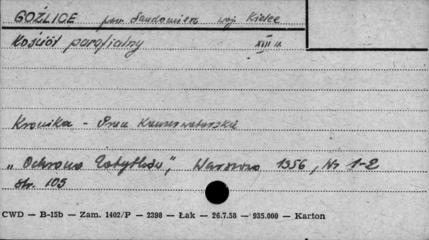 GOŹLICE pow. Sandomierz woj. Kielce
Kościół parafialny XIII w.
Kronika - Prace Konserwatorskie
"Ochrona Zabytków", Warszawa 1956, Nr 1-2
str. 105
CWD — B-15b — Zam. 1402/P — 2398 — Łak — 26.7.58 — 935.000 — Karton